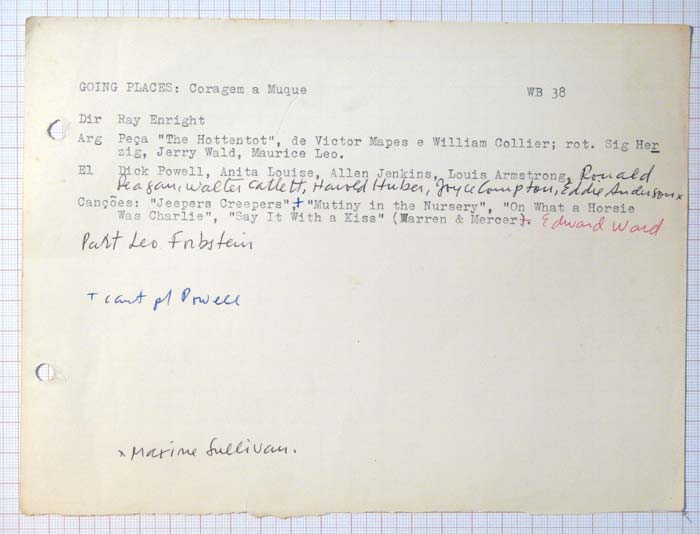 GOING PLACES: Coragem a Muque WB 38
Dir Ray Enright
Arg Peça "The Hottentot", de Victor Mapes e William Collier; rot. Sig Her
zig, Jerry Wald, Maurice Leo.
El Dick Powell, Anita Louise, Allen Jenkins, Louis Armstrong, Ronald
Reagan, Walter Catlett, Harold Huber, Joyce Compton, Eddie Anderson x
Canções: "Jeepers Creepers",+ "Mutiny in the Nursery", "On What a Horsie
Was Charlie", "Say It With a Kiss" (Warren & Mercer). Edward Ward
Part Leo Forbstein
+ cant pl Powell
x Maxine Sullivan.